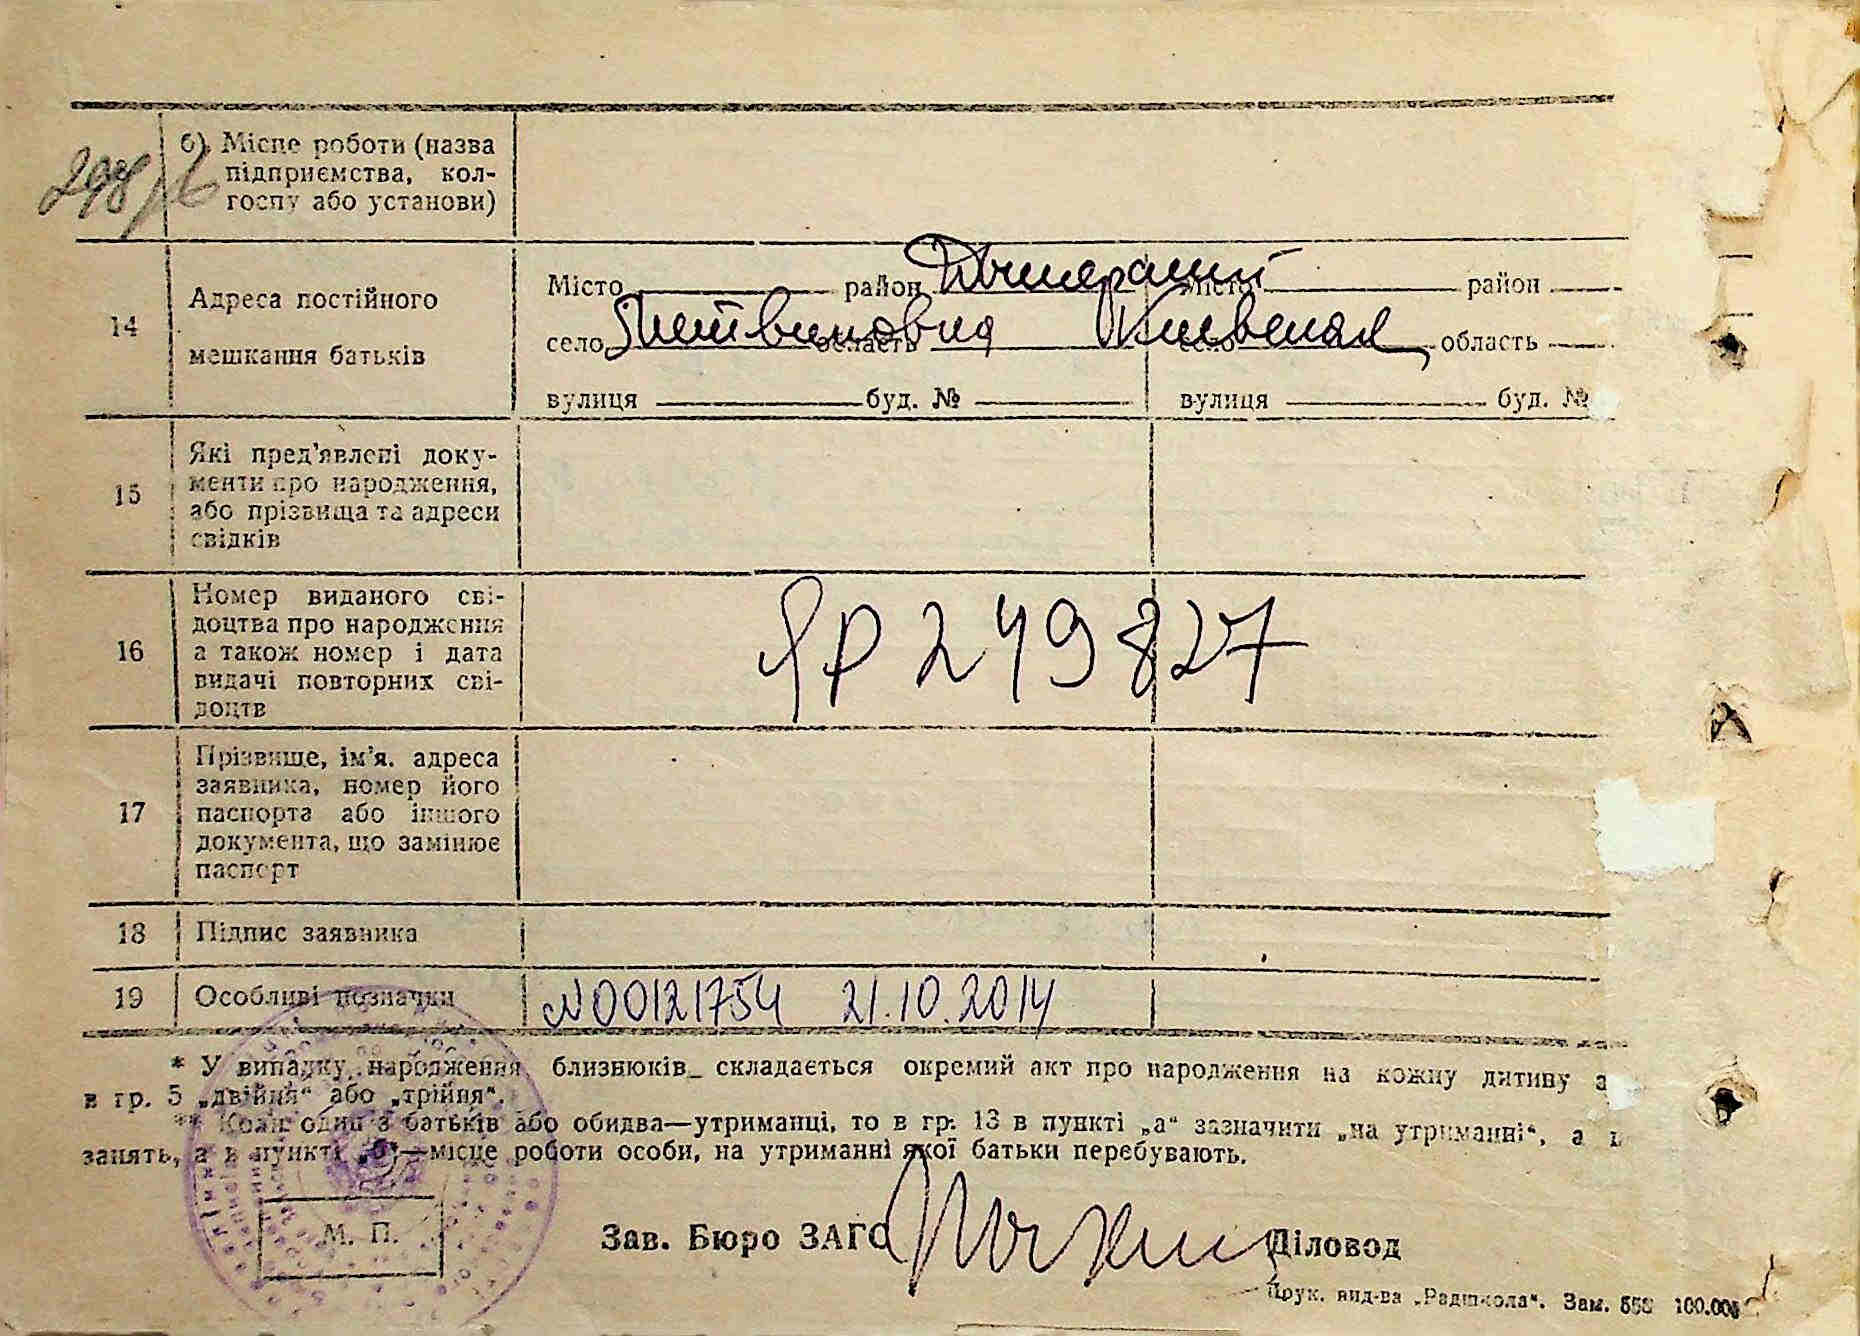 298/6
б) Місце роботи (назва
підприємства, кол-
госпу або установи)
14
Адреса постійного
мешкання батьків
Місто район Дымерский Місто район
село Литвиновка область Киевская село область
вулиця буд. № вулиця буд. №
15
Які пред'явлені доку-
менти про народження,
або прізвища та адреси
свідків
16
Номер виданого сві-
доцтва про народження
а також номер і дата
видачі повторних сві-
доцтв
ЯР 249827
17
Прізвище, ім'я, адреса
заявника, номер його
паспорта або іншого
документа, що замінює
паспорт
18
Підпис заявника
19
Особливі позначки
N00121754 21.10.2014
* У випадку народження близнюків складається окремий акт про народження на кожну дитину а
в гр. 5 „двійня“ або „трійня“.
** Коли один з батьків або обидва—утриманці, то в гр. 13 в пункті „а“ зазначити „на утриманні“, а в
занять, а в пункті „б“—місце роботи особи, на утриманні якої батьки перебувають.
М. П.
Зав. Бюро ЗАГС
Діловод
Друк. вид-ва „Радшкола“. Зам. 558 100.000